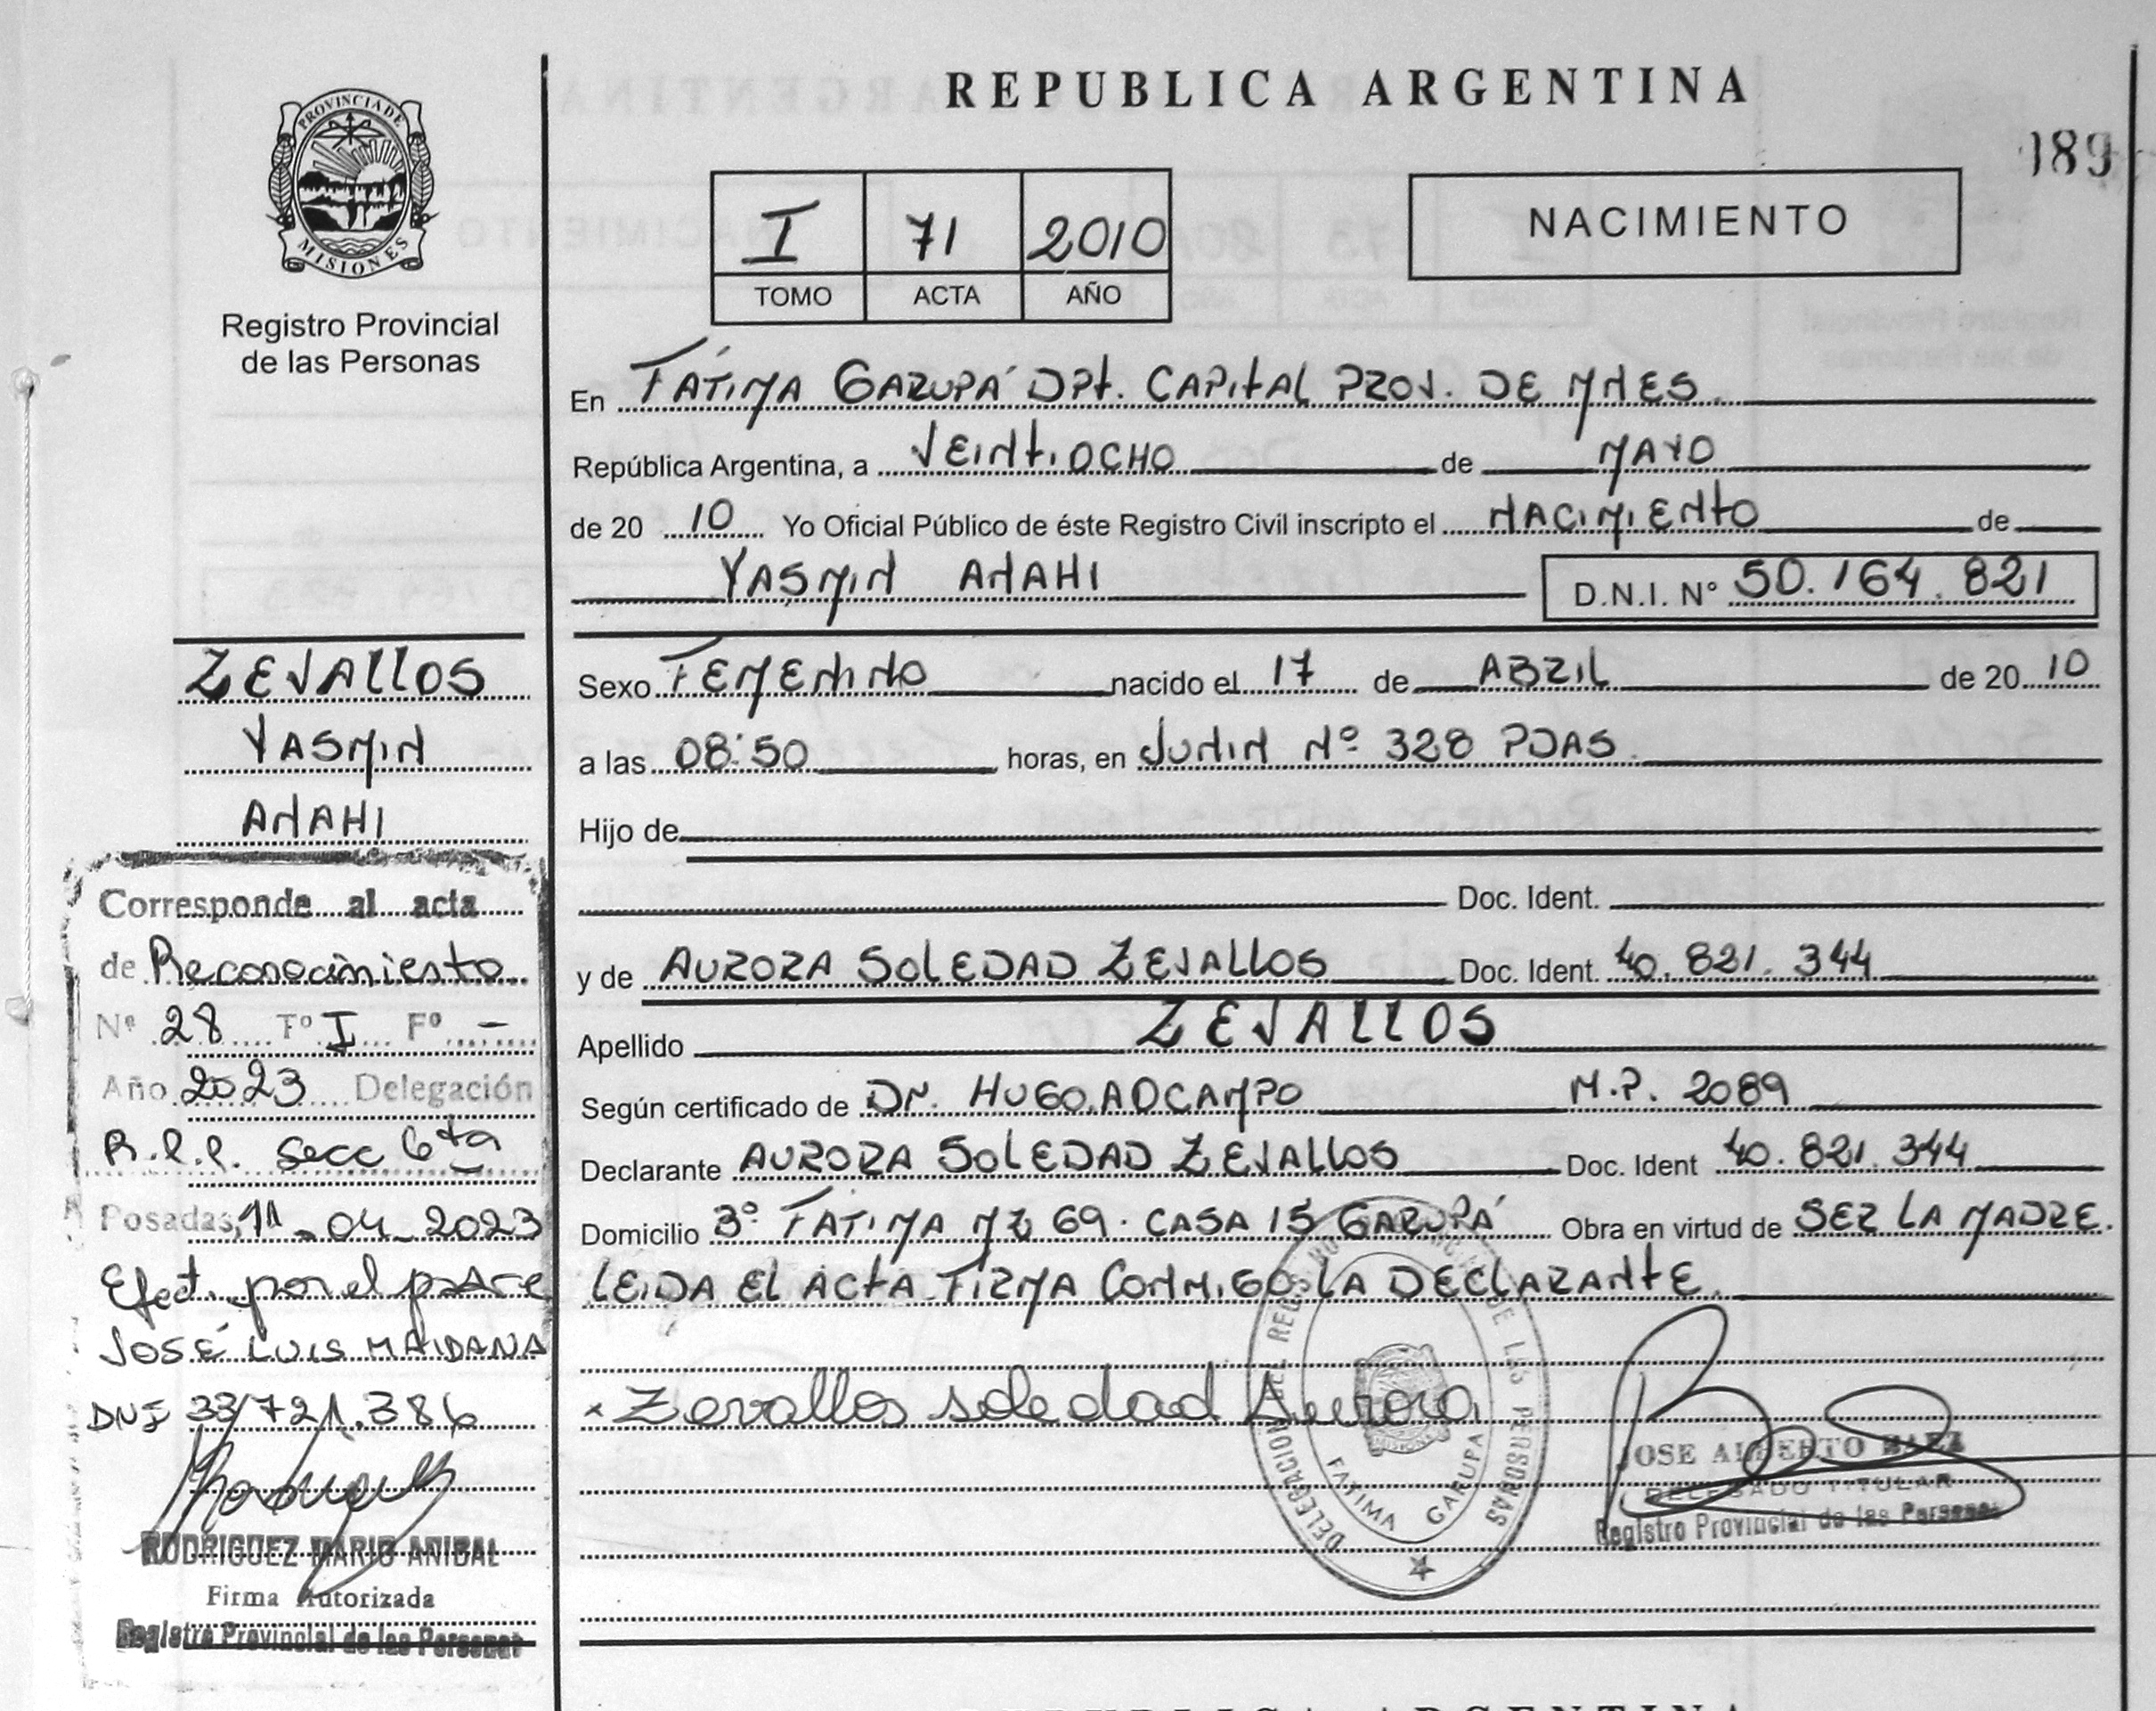 REPUBLICA ARGENTINA
189
PROVINCIA DE
MISIONES
Registro Provincial
de las Personas
I 71 2010
TOMO ACTA AÑO
NACIMIENTO
En FÁTIMA GARUPÁ DPt. CAPITAL PROV. DE MNES.
República Argentina, a VEINTIOCHO de MAYO
de 20 10 Yo Oficial Público de éste Registro Civil inscripto el NACIMIENTO de
YASMIN ANAHI D.N.I. N° 50.164.821
Sexo FEMENINO nacido el 17 de ABRIL de 20 10
a las 08:50 horas, en JUNIN Nº 328 PDAS.
Hijo de
Doc. Ident.
y de AURORA SOLEDAD ZEVALLOS Doc. Ident. 40.821.344
Apellido ZEVALLOS
Según certificado de DR. HUGO A OCAMPO M.P. 2089
Declarante AURORA SOLEDAD ZEVALLOS Doc. Ident 40.821.344
Domicilio 3º FATIMA MZ 69. CASA 15 GARUPÁ Obra en virtud de SER LA MADRE.
LEIDA EL ACTA FIRMA CONMIGO LA DECLARANTE.
x Zevallos soledad Aurora
DELEGACION DEL REGISTRO PROVINCIAL DE LAS PERSONAS
FATIMA GARUPA
JOSE ALBERTO BAEZ
DELEGADO TITULAR
Registro Provincial de las Personas
ZEVALLOS
YASMIN
ANAHI
Corresponde al acta
de Reconocimiento
Nº 28 Tº I Fº -
Año 2023 Delegación
R.P.P. Secc 6ta
Posadas, 11-04-2023
Efect. por el padre
JOSÉ LUIS MAIDANA
DNI 33.721.386
RODRIGUEZ MARIO ANIBAL
Firma Autorizada
Registro Provincial de las Personas
REPUBLICA ARGENTINA